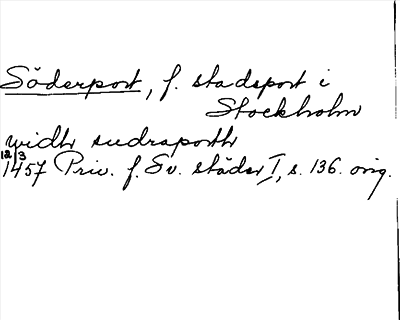 Söderport, f. stadsport i
Stockholm
widh sudraporth
12/3
1457 Priv. f. Sv. städer I, s. 136. orig.